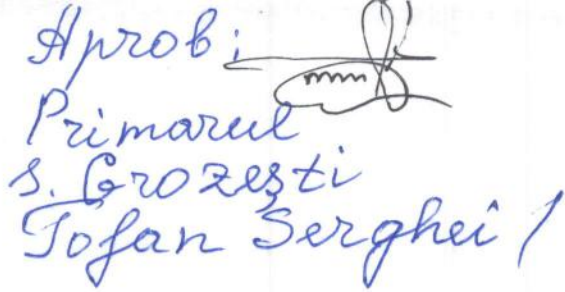 Aprob:
Primarul
s. Grozești
Tofan Serghei /